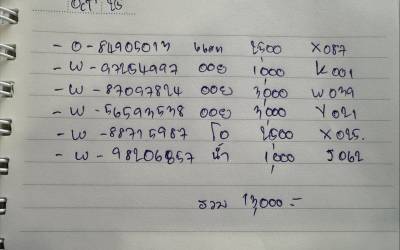 Oct 25
- O - 84905013 แตก 2,500 X087
- W - 97254997 ออย 1,000 K001
- W - 87097824 ออย 3,000 W039
- W - 56593538 ออย 3,000 V021
- W - 88715987 โอ 2,500 X025.
- W - 98206857 น้ำ 1,000 J062
รวม 13,000 =